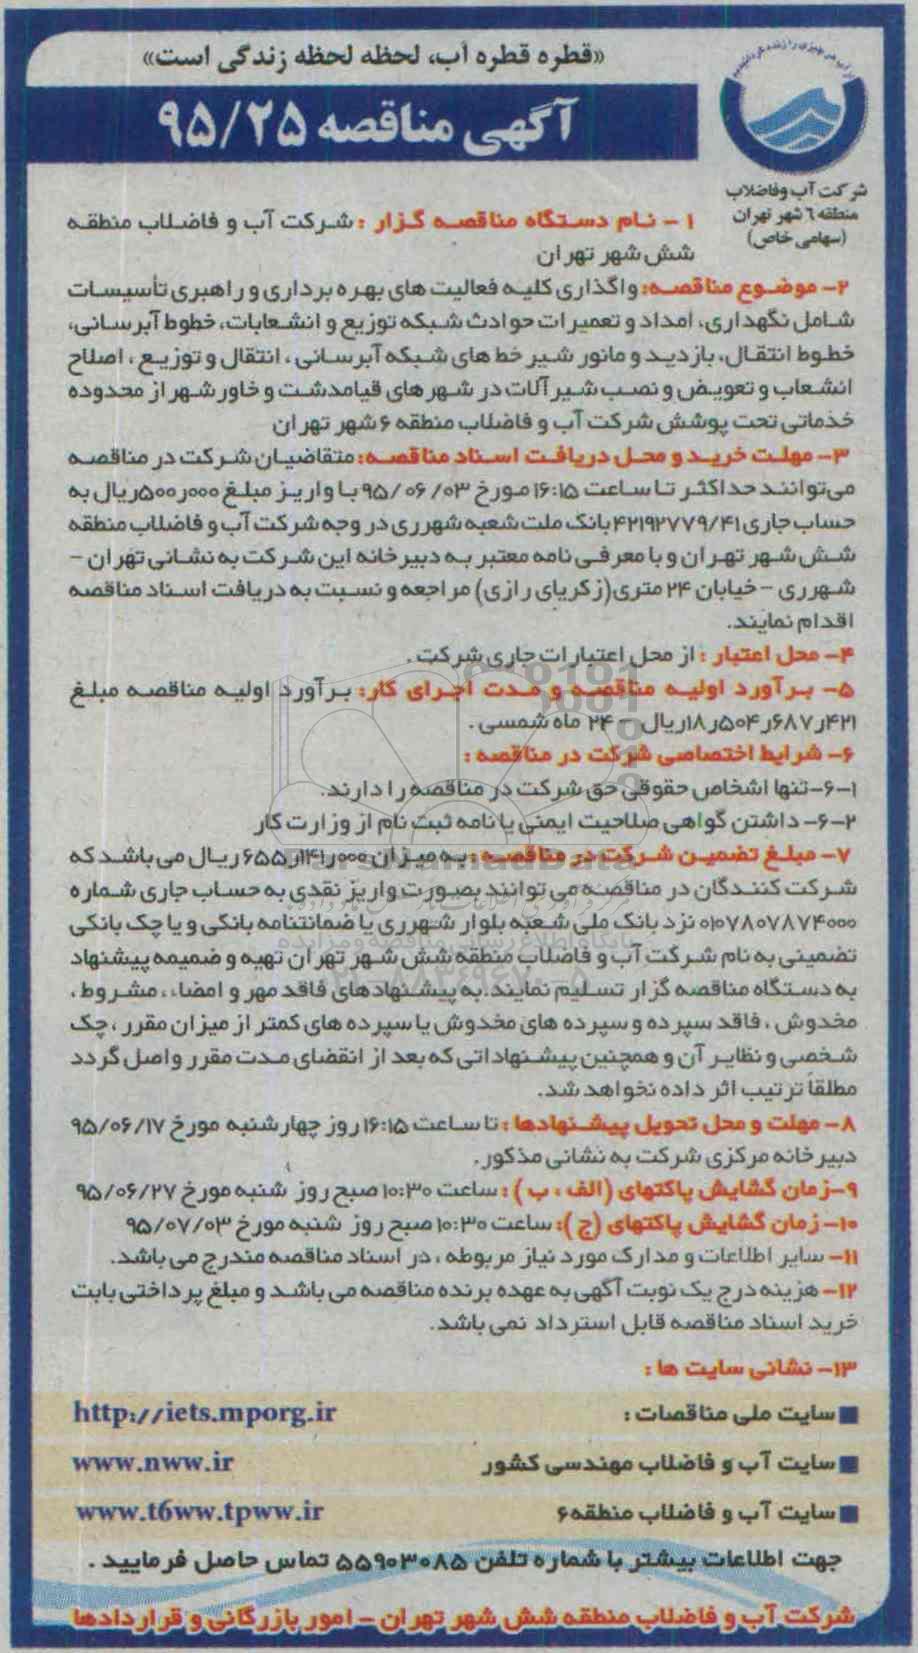 «قطره قطره آب، لحظه لحظه زندگی است»
آگهی مناقصه ۹۵/۲۵
شرکت آب وفاضلاب
منطقه ٦ شهر تهران
(سهامی خاص)
۱ - نام دستگاه مناقصه گزار : شرکت آب و فاضلاب منطقه
شش شهر تهران
۲- موضوع مناقصه: واگذاری کلیه فعالیت های بهره برداری و راهبری تأسیسات
شامل نگهداری، امداد و تعمیرات حوادث شبکه توزیع و انشعابات، خطوط آبرسانی،
خطوط انتقال، بازدید و مانور شیر خط های شبکه آبرسانی، انتقال و توزیع، اصلاح
انشعاب و تعویض و نصب شیرآلات در شهرهای قیامدشت و خاور شهر از محدوده
خدماتی تحت پوشش شرکت آب و فاضلاب منطقه ۶ شهر تهران
۳- مهلت خرید و محل دریافت اسناد مناقصه: متقاضیان شرکت در مناقصه
می‌توانند حداکثر تا ساعت ۱۶:۱۵ مورخ ۹۵/۰۶/۰۳ با واریز مبلغ ۵۰۰ر۰۰۰ ریال به
حساب جاری ۴۲۱۹۲۷۷۹/۴۱ بانک ملت شعبه شهرری در وجه شرکت آب و فاضلاب منطقه
شش شهر تهران و با معرفی نامه معتبر به دبیرخانه این شرکت به نشانی تهران -
شهرری - خیابان ۲۴ متری (زکریای رازی) مراجعه و نسبت به دریافت اسناد مناقصه
اقدام نمایند.
۴- محل اعتبار : از محل اعتبارات جاری شرکت.
۵- برآورد اولیه مناقصه و مدت اجرای کار: برآورد اولیه مناقصه مبلغ
۱۸ر۵۰۴ر۶۸۷ر۴۲۱ ریال - ۲۴ ماه شمسی.
۶- شرایط اختصاصی شرکت در مناقصه :
۶-۱- تنها اشخاص حقوقی حق شرکت در مناقصه را دارند.
۶-۲- داشتن گواهی صلاحیت ایمنی یا نامه ثبت نام از وزارت کار
۷- مبلغ تضمین شرکت در مناقصه : به میزان ۶۵۵ر۱۴۱ر۰۰۰ ریال می باشد که
شرکت کنندگان در مناقصه می توانند بصورت واریز نقدی به حساب جاری شماره
۰۱۰۷۸۰۷۸۷۴۰۰۰ نزد بانک ملی شعبه بلوار شهرری یا ضمانتنامه بانکی و یا چک بانکی
تضمینی به نام شرکت آب و فاضلاب منطقه شش شهر تهران تهیه و ضمیمه پیشنهاد
به دستگاه مناقصه گزار تسلیم نمایند. به پیشنهادهای فاقد مهر و امضاء، مشروط،
مخدوش، فاقد سپرده و سپرده های مخدوش یا سپرده های کمتر از میزان مقرر، چک
شخصی و نظایر آن و همچنین پیشنهاداتی که بعد از انقضای مدت مقرر واصل گردد
مطلقاً ترتیب اثر داده نخواهد شد.
۸- مهلت و محل تحویل پیشنهادها : تا ساعت ۱۶:۱۵ روز چهارشنبه مورخ ۹۵/۰۶/۱۷
دبیرخانه مرکزی شرکت به نشانی مذکور.
۹-زمان گشایش پاکتهای (الف ، ب) : ساعت ۱۰:۳۰ صبح روز شنبه مورخ ۹۵/۰۶/۲۷
۱۰- زمان گشایش پاکتهای (ج ): ساعت ۱۰:۳۰ صبح روز شنبه مورخ ۹۵/۰۷/۰۳
۱۱- سایر اطلاعات و مدارک مورد نیاز مربوطه، در اسناد مناقصه مندرج می باشد.
۱۲- هزینه درج یک نوبت آگهی به عهده برنده مناقصه می باشد و مبلغ پرداختی بابت
خرید اسناد مناقصه قابل استرداد نمی باشد.
۱۳- نشانی سایت ها :
سایت ملی مناقصات : http://iets.mporg.ir
سایت آب و فاضلاب مهندسی کشور www.nww.ir
سایت آب و فاضلاب منطقه۶ www.t6ww.tpww.ir
جهت اطلاعات بیشتر با شماره تلفن ۵۵۹۰۳۰۸۵ تماس حاصل فرمایید.
شرکت آب و فاضلاب منطقه شش شهر تهران - امور بازرگانی و قراردادها